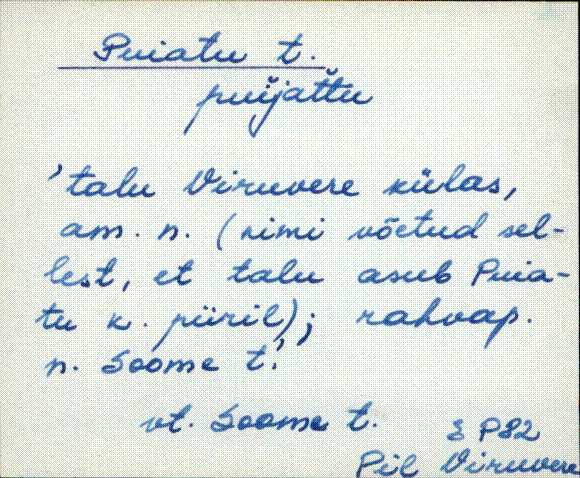 Puiatu t.
puĭjat̆tu
'talu Viruvere külas,
am. n. (nimi võetud sel-
lest, et talu asub Puia-
tu k. piiril); rahvap.
n. Soome t.'
vt. Soome t.
§ P82
Pil Viruvere